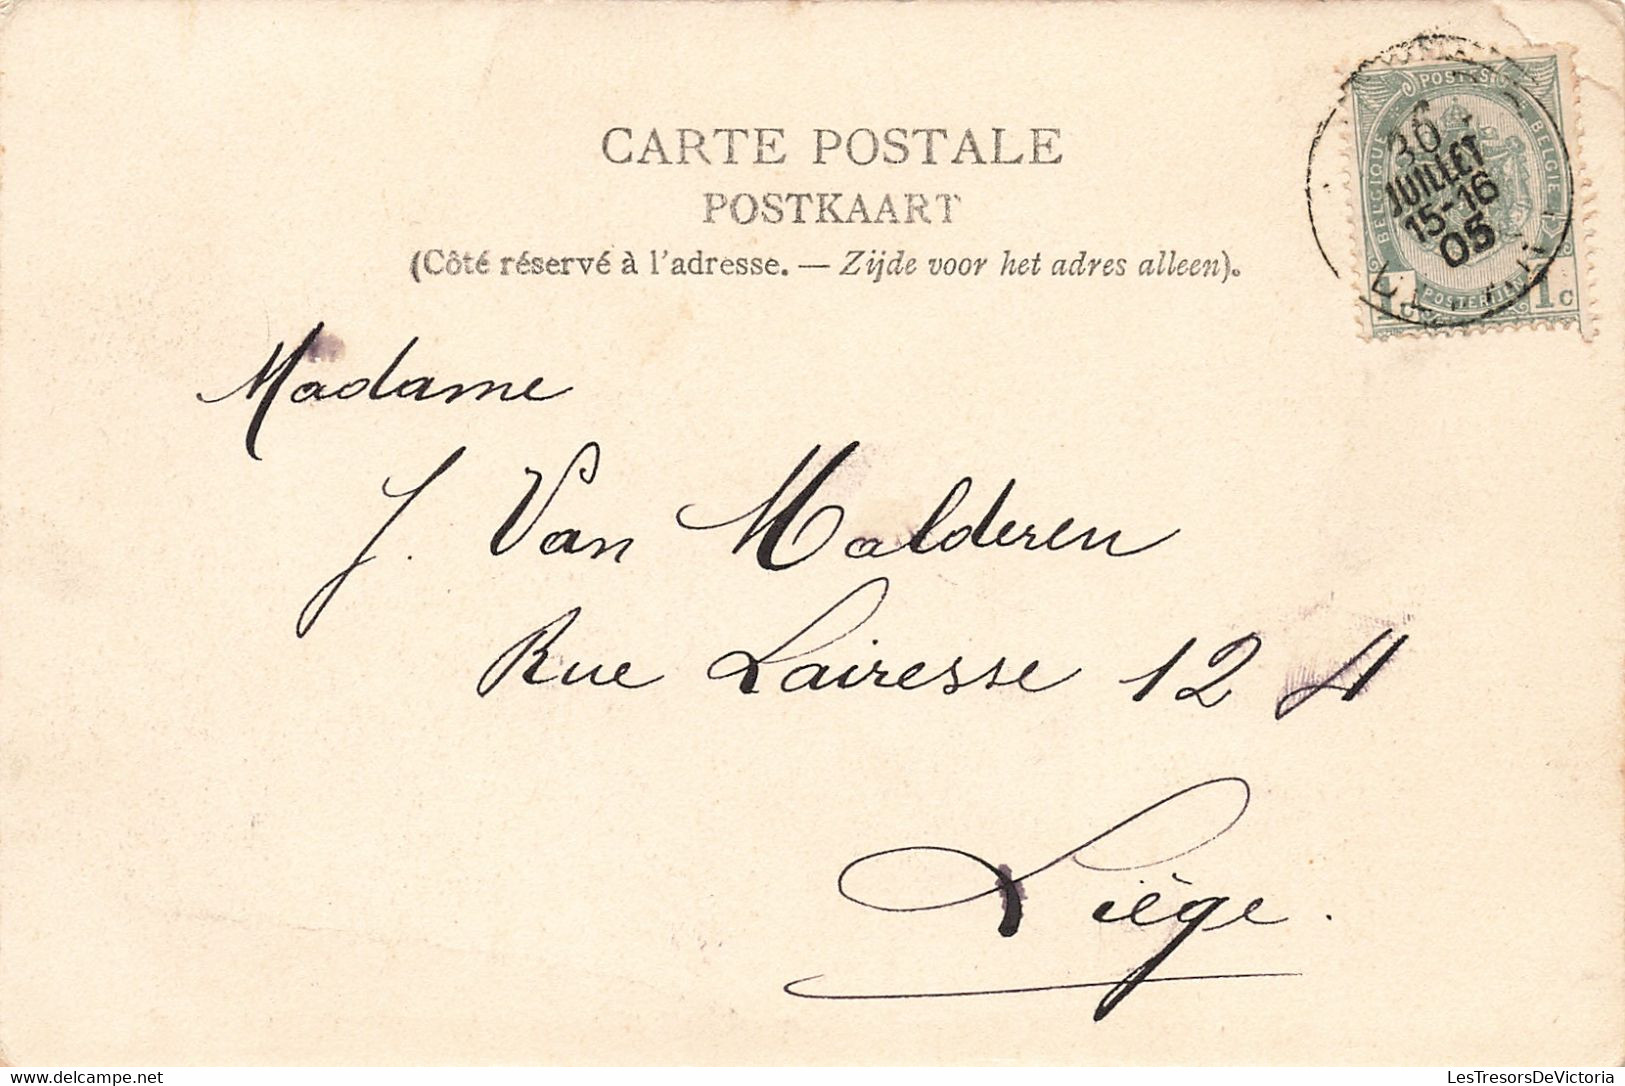 CARTE POSTALE
POSTKAART
(Côté réservé à l'adresse. — Zijde voor het adres alleen).
POSTES
BELGIQUE
BELGIE
POSTERIJEN
1 c
JUILLET
15-16
05
Madame
J. Van Malderen
Rue Lairesse 124
Liège.
LesTresorsDeVictoria